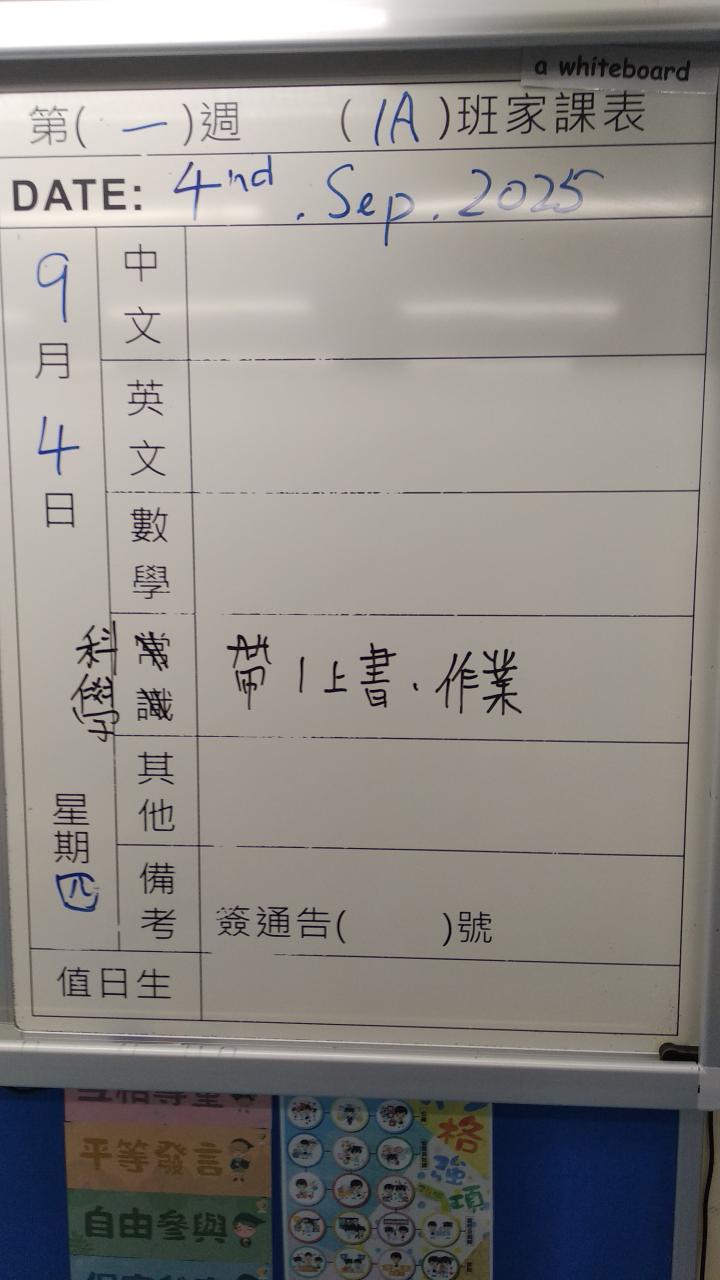 a whiteboard
第( 一 )週 ( 1A )班家課表
DATE: 4nd . Sep . 2025
9月4日
星期四
中文
英文
數學
科學 常識 帶1上書、作業
其他
備考 簽通告( )號
值日生
平等發言
自由參與
格強項